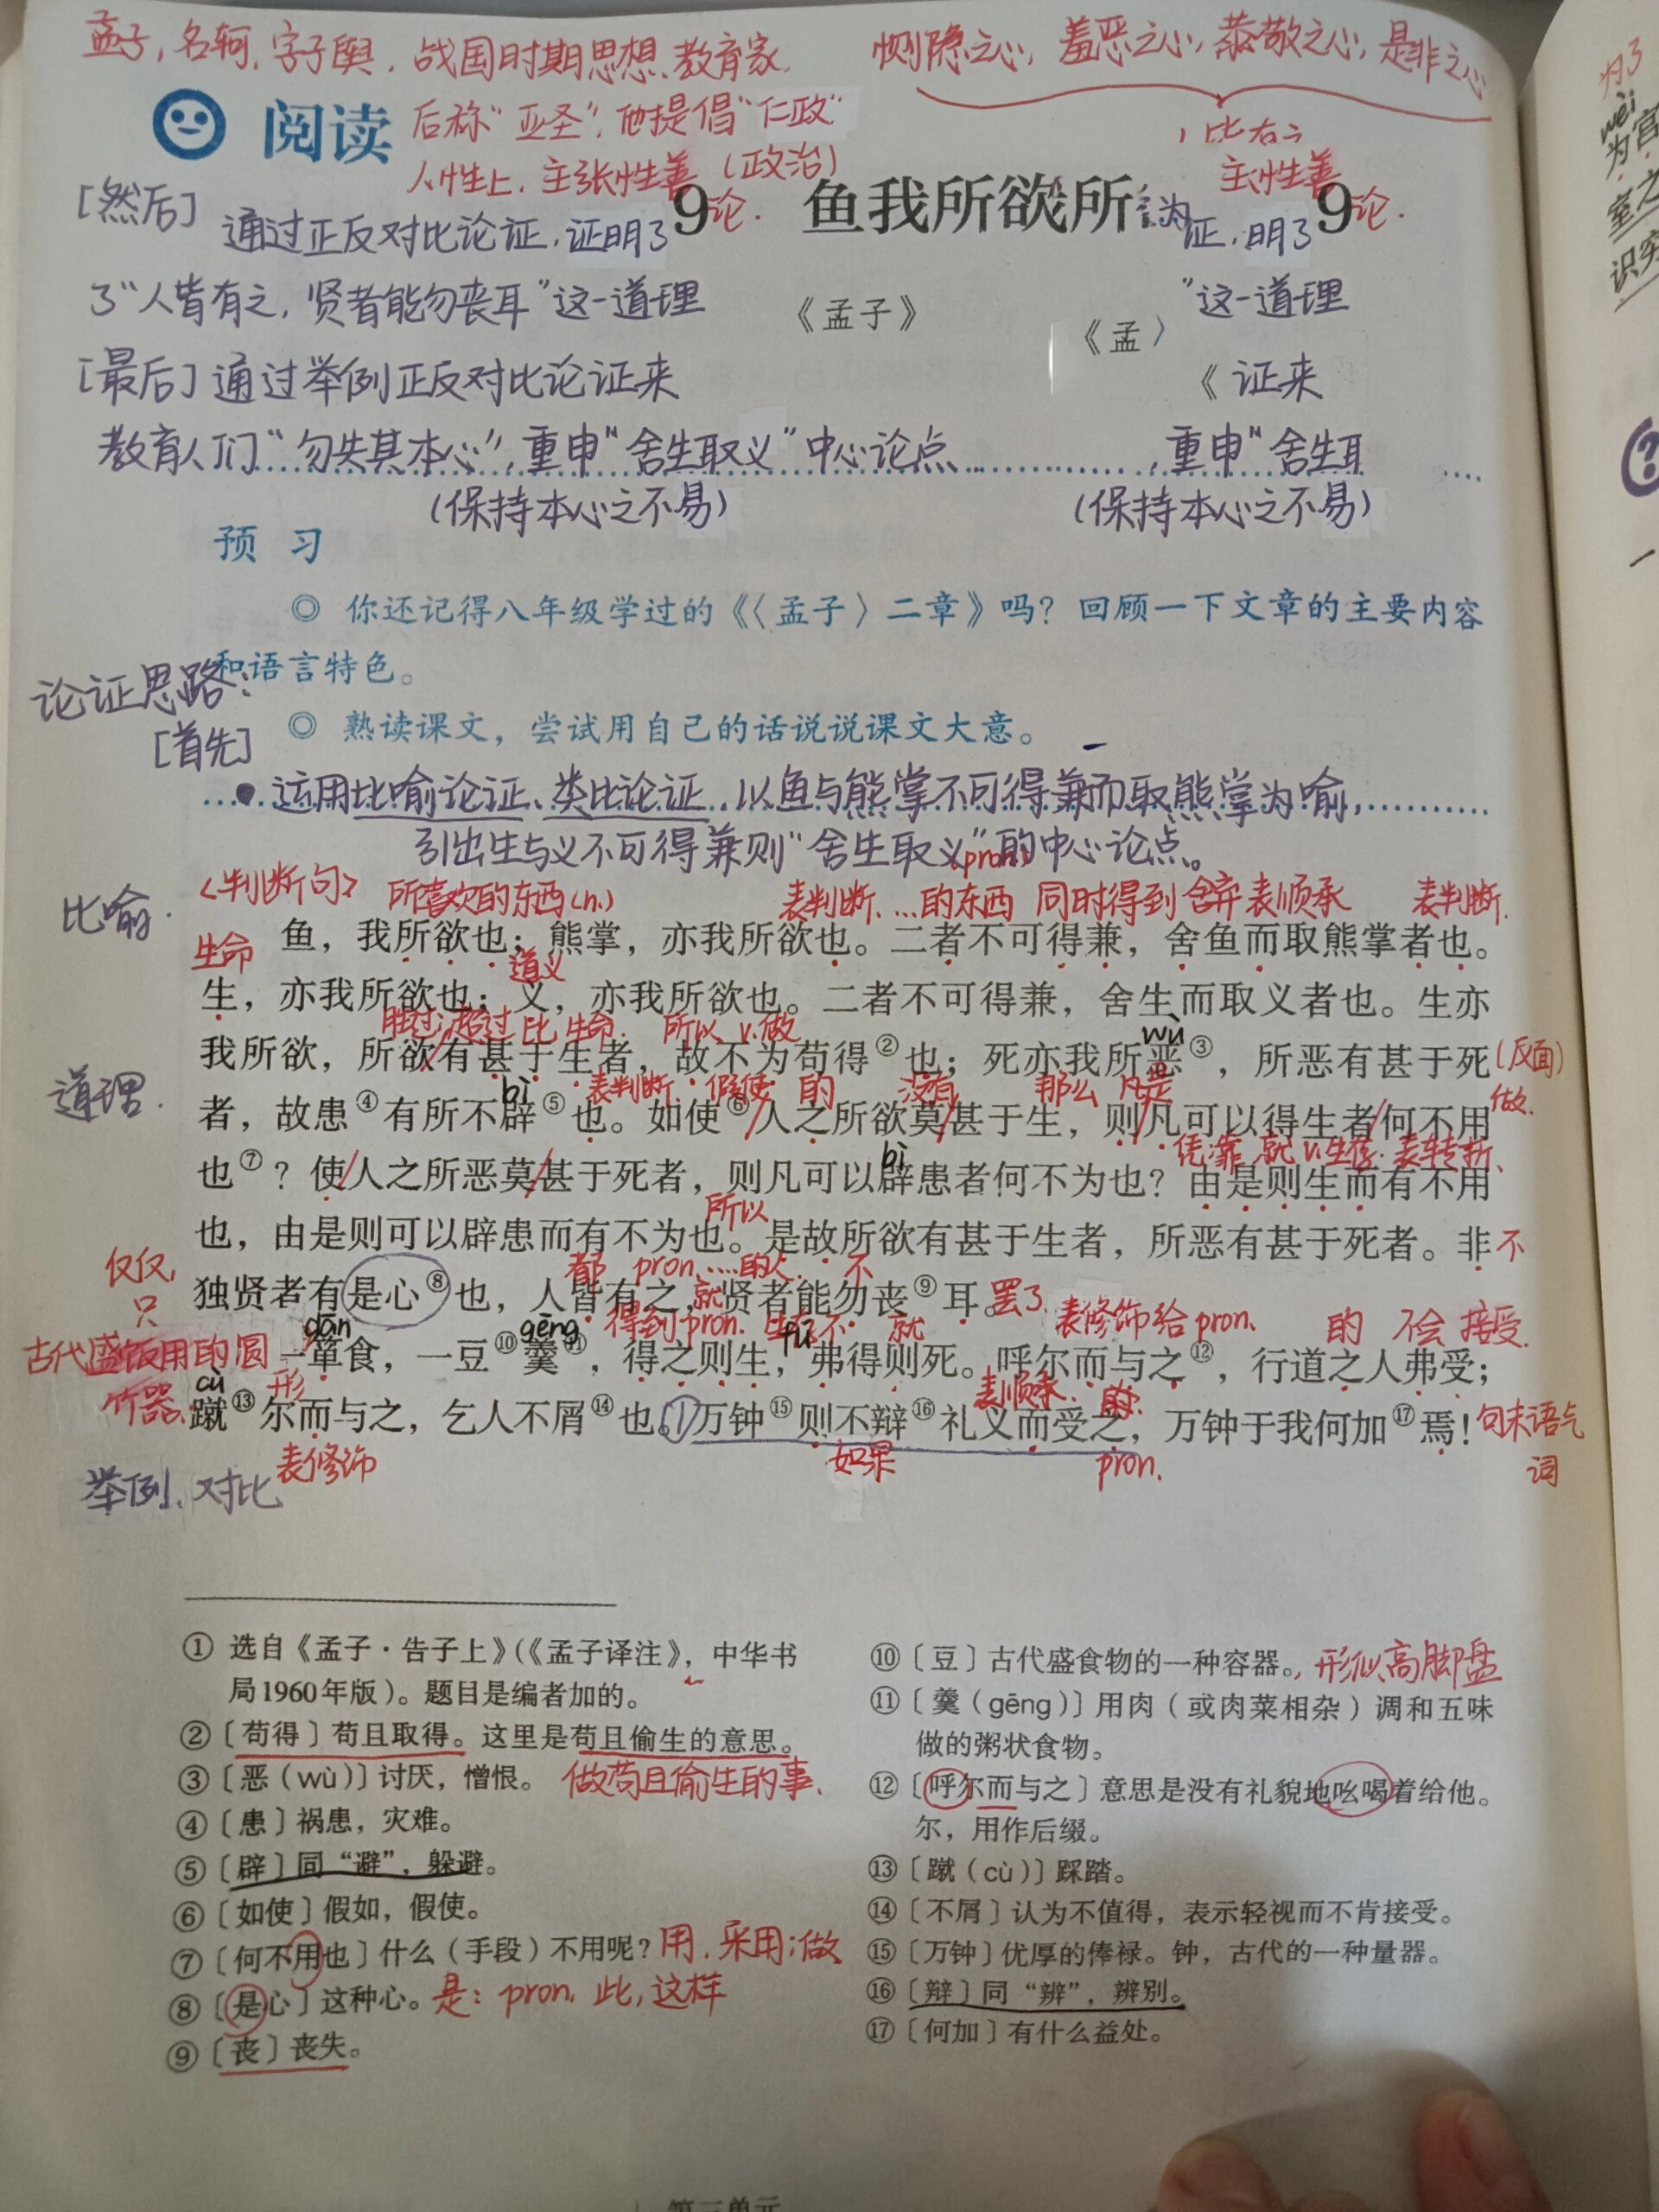 孟子,名轲,字子舆.战国时期思想、教育家.
恻隐之心,羞恶之心,恭敬之心,是非之心
阅读
后称"亚圣",他提倡"仁政"
人性上,主张性善 (政治)
主性善
[然后]
9论.
鱼我所欲所
9论.
通过正反对比论证,证明了
证,明了
了"人皆有之,贤者能勿丧耳"这一道理
《孟子》
《孟〉
"这一道理
[最后]通过举例正反对比论证来
《 证来
教育人们"勿失其本心",重申"舍生取义"中心论点
,重申"舍生
(保持本心之不易)
(保持本心之不易)
预 习
◎ 你还记得八年级学过的《〈孟子〉二章》吗?回顾一下文章的主要内容
和语言特色。
论证思路:
◎ 熟读课文,尝试用自己的话说说课文大意。
[首先]
运用比喻论证、类比论证,以鱼与熊掌不可得兼而取熊掌为喻,
引出生与义不可得兼则"舍生取义"的中心论点。
pron.
〈判断句〉 所喜欢的东西(n.) 表判断. …的东西 同时得到 舍弃 表顺承 表判断.
比喻.
鱼,我所欲也;熊掌,亦我所欲也。二者不可得兼,舍鱼而取熊掌者也。
生命 道义
生,亦我所欲也;义,亦我所欲也。二者不可得兼,舍生而取义者也。生亦
胜过;超过 比 生命. 所以 v.做 wù
我所欲,所欲有甚于生者,故不为苟得②也;死亦我所恶③,所恶有甚于死
(反面)
道理.
bì 表判断. 假使 的 没有 那么 凡是 做.
者,故患④有所不辟⑤也。如使⑥人之所欲莫甚于生,则凡可以得生者何不用
bì 凭靠 就 v.生存. 表转折、
也⑦?使人之所恶莫甚于死者,则凡可以辟患者何不为也?由是则生而有不用
所以
也,由是则可以辟患而有不为也。是故所欲有甚于生者,所恶有甚于死者。非
不
仅仅,只
都 pron. …的人. 不
独贤者有是心⑧也,人皆有之,贤者能勿丧⑨耳。
罢了.
古代盛饭用的圆形竹器.
dān gēng 得到 pron. 就 不 fú 就 表修饰 给 pron. 的 不会 接受.
一箪食,一豆⑩羹⑪,得之则生,弗得则死。呼尔而与之⑫,行道之人弗受;
cù 表顺承.
蹴⑬尔而与之,乞人不屑⑭也。万钟⑮则不辩⑯礼义而受之,万钟于我何加⑰焉!
句末语气词
表修饰 如果 pron.
举例、对比
① 选自《孟子·告子上》(《孟子译注》,中华书
局1960年版)。题目是编者加的。
②〔苟得〕苟且取得。这里是苟且偷生的意思。
③〔恶(wù)〕讨厌,憎恨。 做苟且偷生的事.
④〔患〕祸患,灾难。
⑤〔辟〕同“避”,躲避。
⑥〔如使〕假如,假使。
⑦〔何不用也〕什么(手段)不用呢? 用.采用;做
⑧〔是心〕这种心。 是:pron.此,这样
⑨〔丧〕丧失。
⑩〔豆〕古代盛食物的一种容器。,形似高脚盘
⑪〔羹(gēng)〕用肉(或肉菜相杂)调和五味
做的粥状食物。
⑫〔呼尔而与之〕意思是没有礼貌地吆喝着给他。
尔,用作后缀。
⑬〔蹴(cù)〕踩踏。
⑭〔不屑〕认为不值得,表示轻视而不肯接受。
⑮〔万钟〕优厚的俸禄。钟,古代的一种量器。
⑯〔辩〕同“辨”,辨别。
⑰〔何加〕有什么益处。
第三单元
wèi
为宫
室之
识穷